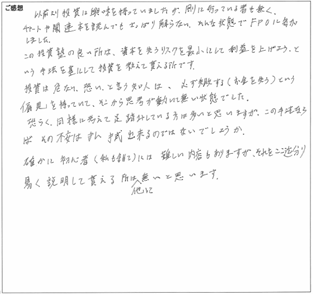 ご感想
以前投資に興味を持っていましたが、周りに行っている者も無く、
チャートや関連本を読んでもさっぱり解らない、そんな状態でFPOに参加
しました。
この投資塾の良い所は、資本を失うリスクを最小にして利益を上げよう、と
いう手法を基にして投資を教えて貰える所です。
投資は危ない、恐い、と思う人は、必ず破綻する(お金を失う)という
偏見を持っていて、そこから思考が動いて無い状態でした。
恐らく、同様に考えて足踏みしている方は多いと思いますが、この手法なら
ば その不安は 出来るのではないでしょうか。
確かに初心者(私も含めて)には難しい内容もありますが、それをここまで分り
易く説明して貰える所は他に無いと思います。